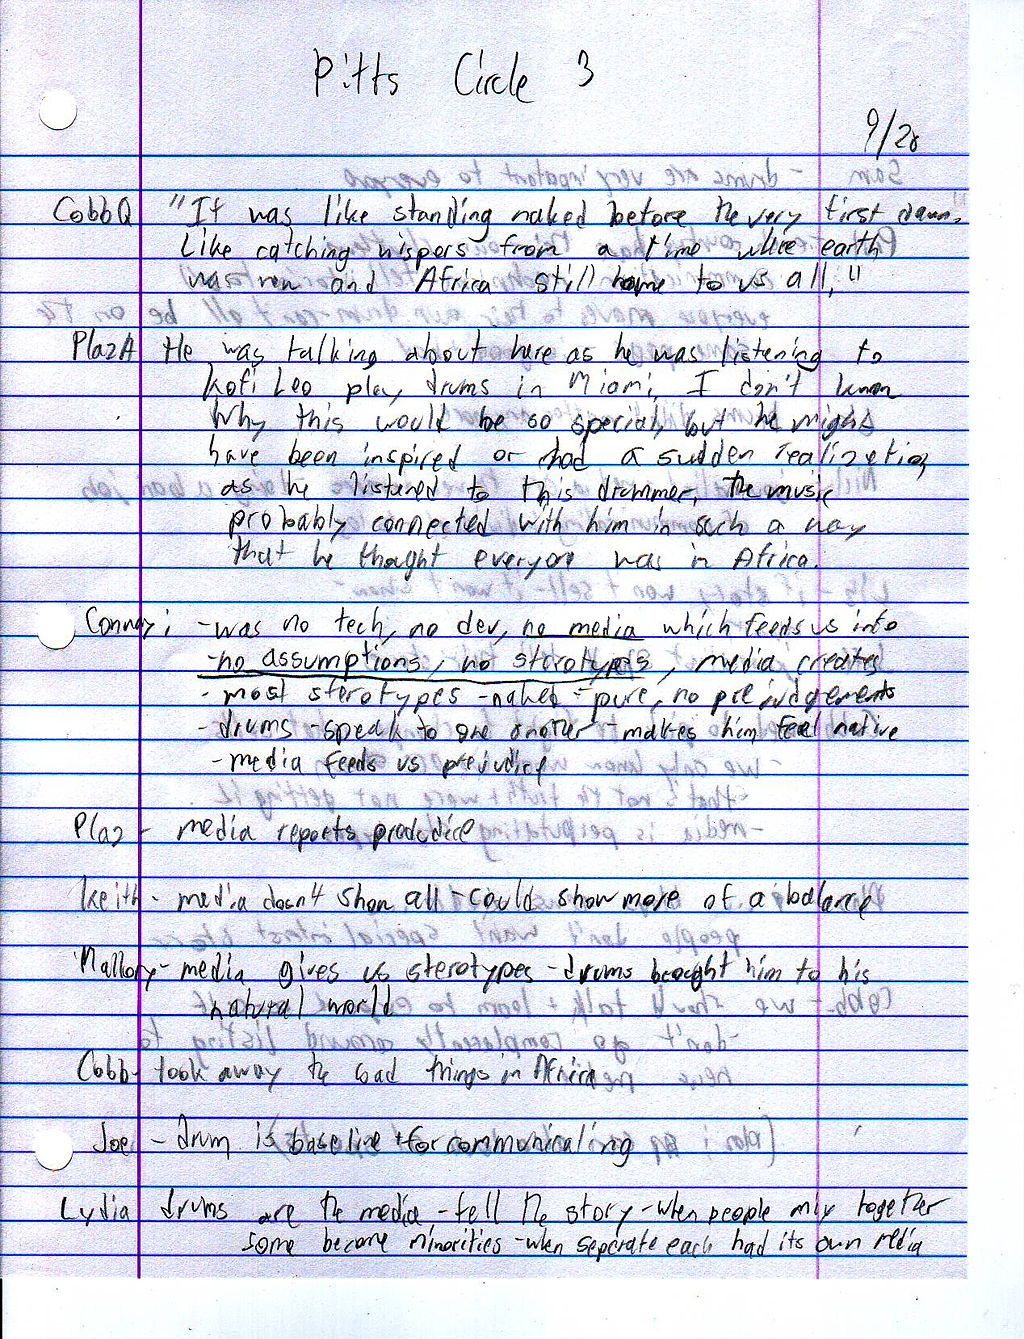 Pitts Circle 3
9/28
CobbQ "It was like standing naked before the very first dawn.
Like catching wispers from a time when earth
was new and Africa still home to us all."
PlazA He was talking about here as he was listening to
Kofi Leo play drums in Miami, I don't know
why this would be so special, but he might
have been inspired or had a sudden realization
as he listened to this drummer. The music
probably connected with him in such a way
that he thought everyone was in Africa.
-was no tech, no dev, no media which feeds us into
-no assumptions, no sterotypes, media creates
- most sterotypes -naked - pure, no prejudgements
- drums - speak to one another makes him feel native
- media feeds us prejudice
Plaz - media reports
Keith - media doesn't show all - could show more of a balance
Mallory - media gives us sterotypes - drums brought him to his
natural world
Cobb - took away the bad things in Africa
Joe - drum is baseline for communicating
Lydia drums are the media - tell the story - when people mix together
some become minorities - when seperate each had its own media